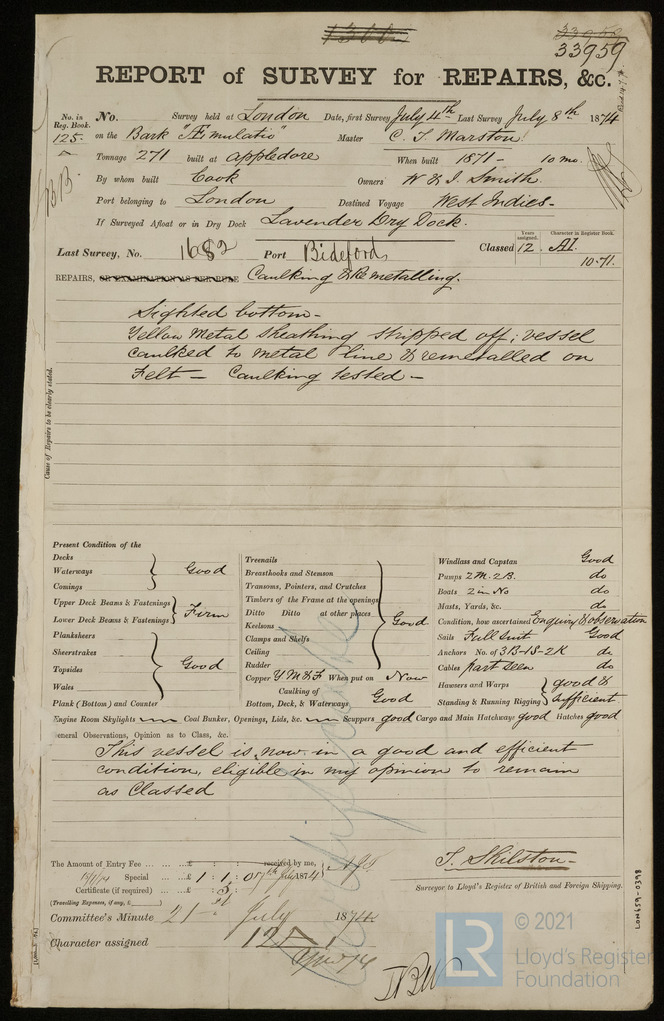 33959
33959
REPORT of SURVEY for REPAIRS, &c.
No. in Reg. Book. No. Survey held at London Date, first Survey July 4th Last Survey July 8th 1874
125 on the Bark "Æmulatio" Master C. T. Marston
Tonnage 271 built at Appledore When built 1871 - 10 mo.
By whom built Cook Owners W & J. Smith.
Port belonging to London Destined Voyage West Indies -
If Surveyed Afloat or in Dry Dock Lavender Dry Dock.
Last Survey, No. 1682 Port Bideford Classed Years assigned. 12 Character in Register Book. A1.
10.71.
REPAIRS, OR EXAMINATION AS PER RULE Caulking & Remetalling.
Cause of Repairs to be clearly stated.
Sighted bottom -
Yellow Metal sheathing stripped off; vessel
caulked to metal line & remetalled on
Felt - Caulking tested -
Present Condition of the
Decks
Waterways Good
Comings
Upper Deck Beams & Fastenings
Lower Deck Beams & Fastenings Firm
Planksheers
Sheerstrakes
Topsides Good
Wales
Plank (Bottom) and Counter
Treenails
Breasthooks and Stemson
Transoms, Pointers, and Crutches
Timbers of the Frame at the openings
Ditto Ditto at other places Good
Keelsons
Clamps and Shelfs
Ceiling
Rudder
Copper Y M & F When put on Now
Caulking of
Bottom, Deck, & Waterways Good
Windlass and Capstan Good
Pumps 2 M. 2 B. do
Boats 2 in No do
Masts, Yards, &c. do
Condition, how ascertained Enquiry & observation
Sails Full Suit Good
Anchors No. of 3B-1S-2K do
Cables part seen do
Hawsers and Warps good &
Standing & Running Rigging sufficient
Engine Room Skylights Coal Bunker, Openings, Lids, &c. Scuppers good Cargo and Main Hatchways good Hatches good
General Observations, Opinion as to Class, &c.
This vessel is now in a good and efficient
condition, eligible in my opinion to remain
as Classed
The Amount of Entry Fee ... ... £ received by me,
Special ... £ 1 : 1 : 0 July 1874
Certificate (if required) ... : 5 :
(Travelling Expenses, if any, £ )
T. Skilston -
Surveyor to Lloyd's Register of British and Foreign Shipping.
Committee's Minute 21st July 1874
Character assigned 12 A 1
LON659-0398
© 2021
LR
Lloyd's Register
Foundation